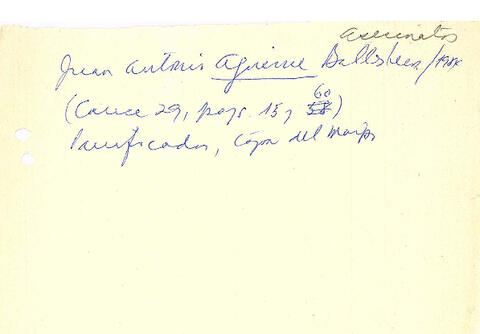 asesinatos
Juan Antonio Aguirre Ballesteros/
(Causa 29, pags. 15 y 60)
Panificador, Cajón del Maipo